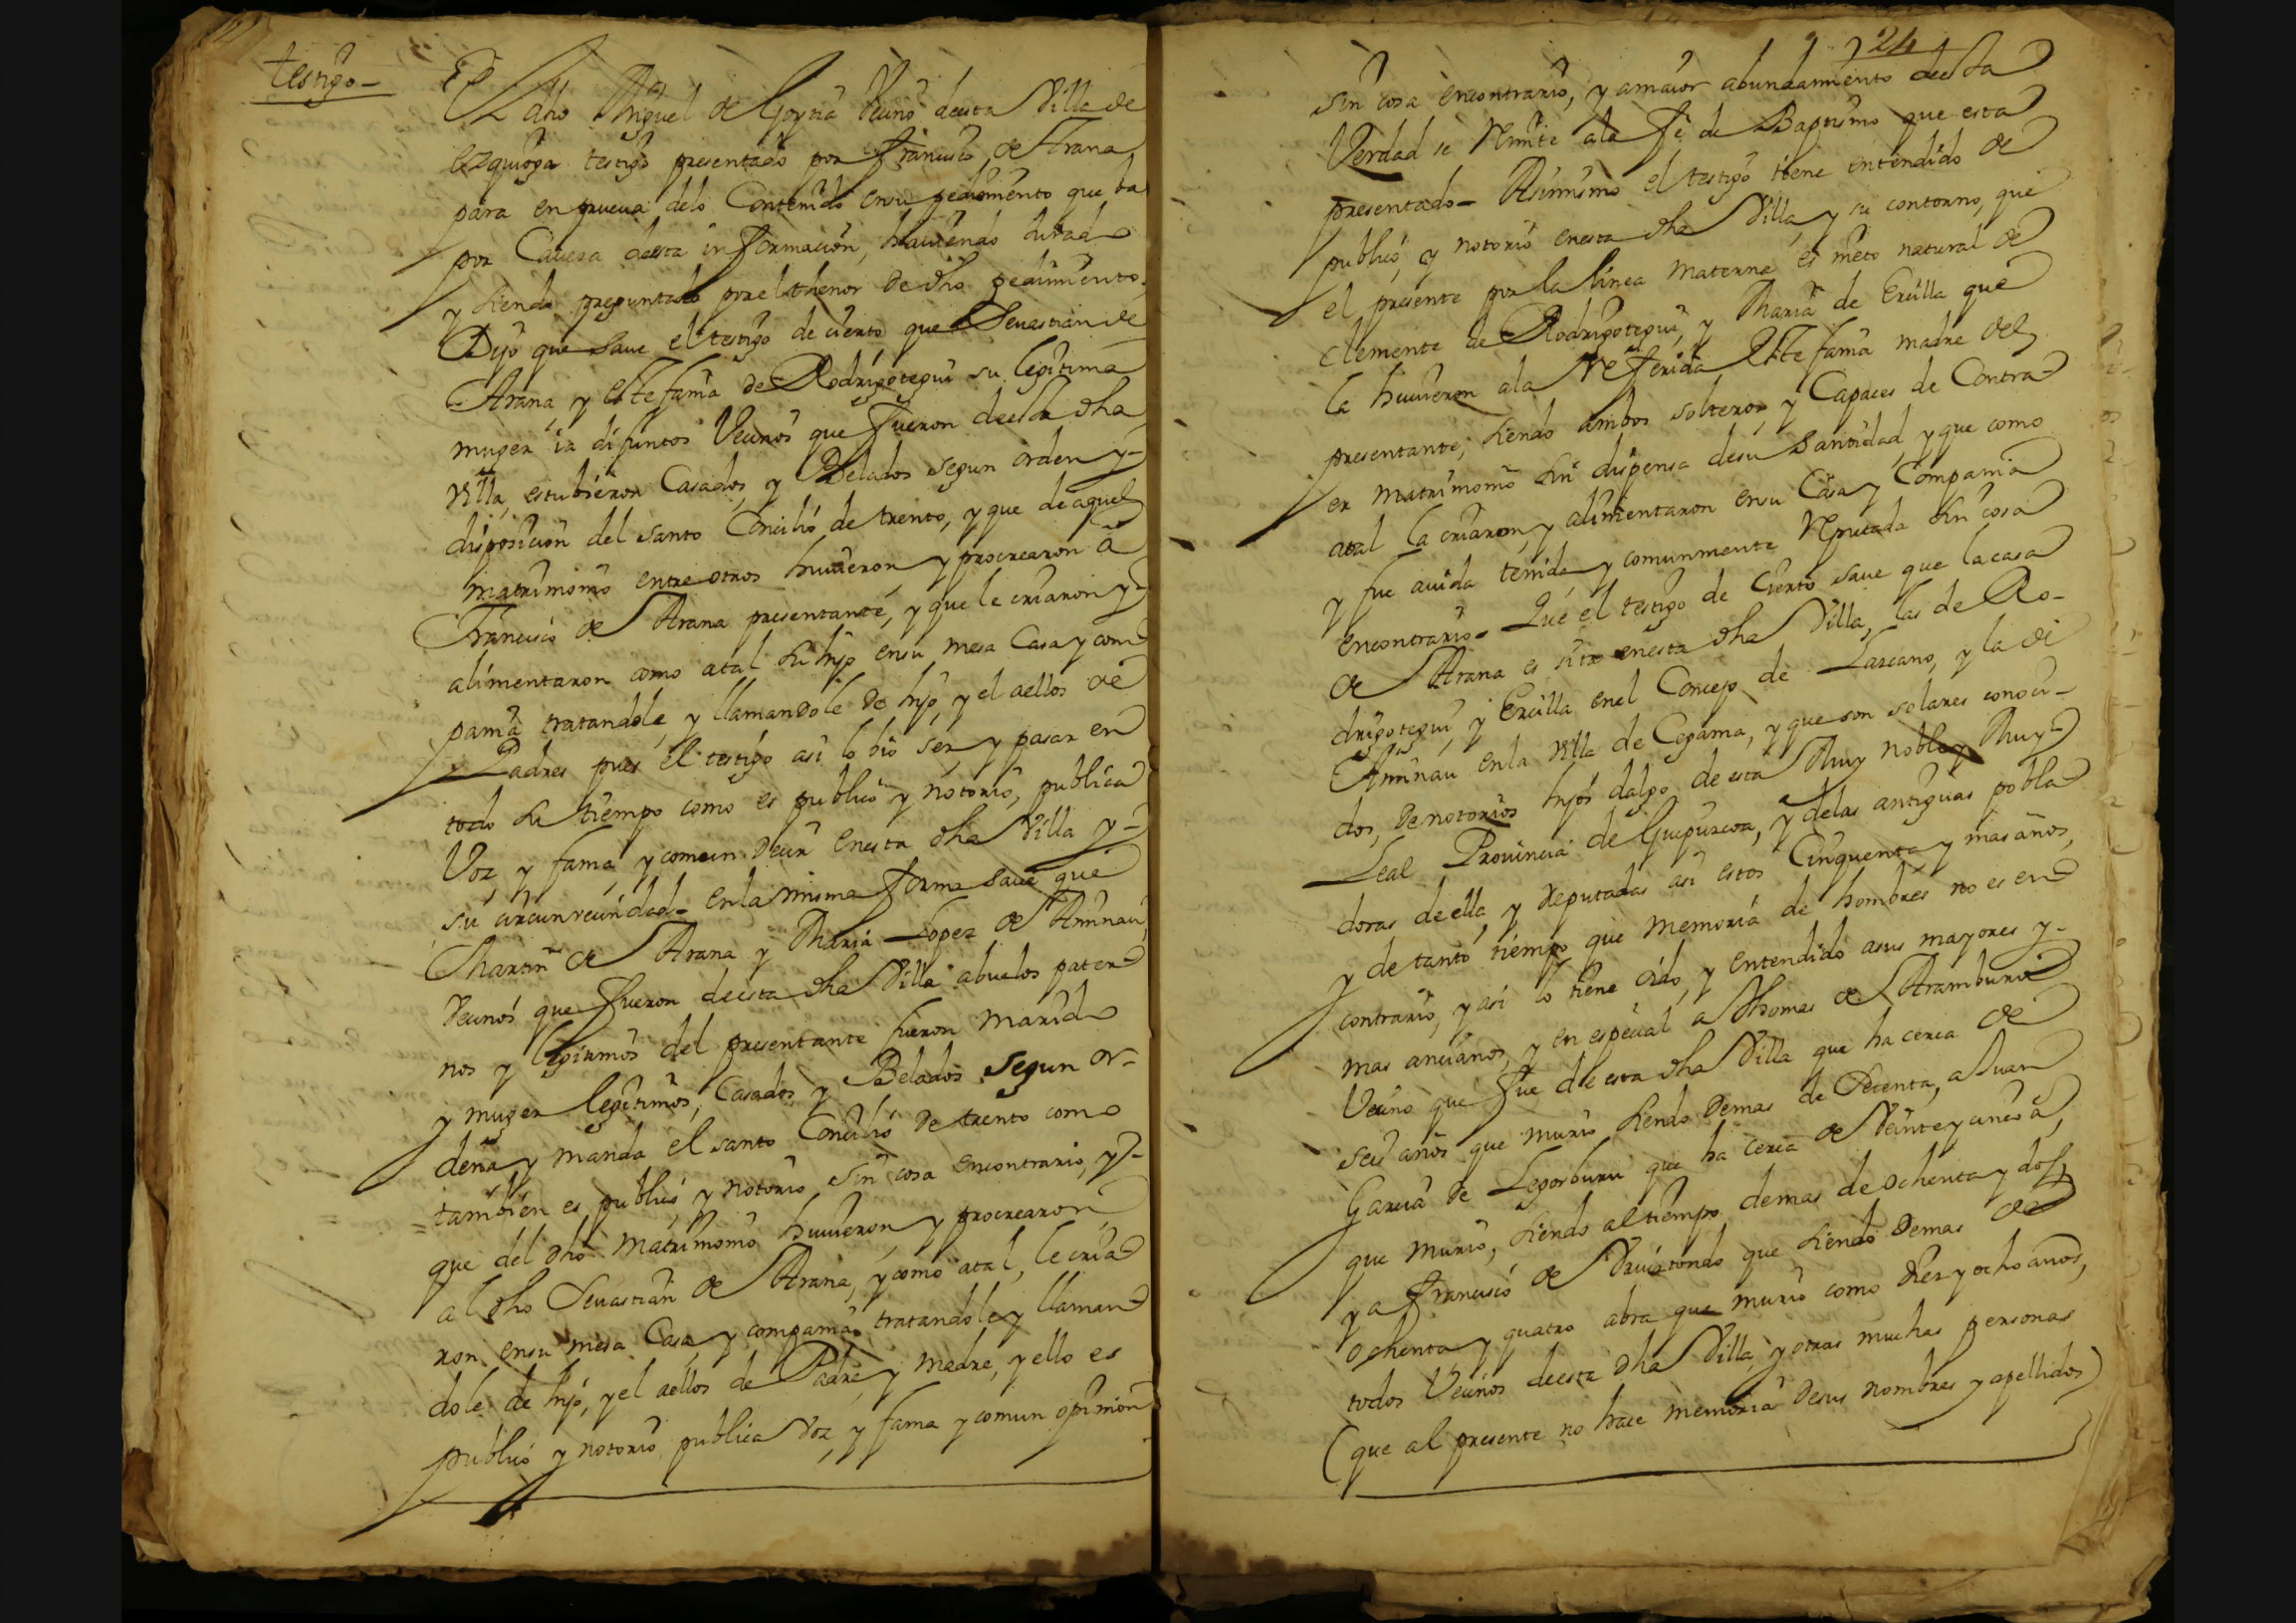 testigo-
El dho Miguel de Goytia Vecino deesta Villa de
ezquioga testigo presentado por Francisco de Arana
para en prueua delo Contenido ensu pedimento que ba
por Caueza deesta información, hauiendo Jurado
y siendo preguntado porelthenor de dho pedimiento.
Dijo que saue el testigo de cierto que Seuastian de
Arana, y Estefania de Rodrigotegui su legitima
muger ia difuntos Vecinos que fueron deesta dha
villa, estubieron Casados, y Belados segun orden y-
disposicion del santo Concilio de trento, y que de aquel
matrimonio entre otros huuieron y procrearon â
Francisco de Arana presentante, y que le criaron y
alimentaron como atal su hijo ensu mesa Casa y com
pania tratandole, y llamandole de hijo, y el aellos de
Padres pues el testigo asi lo bio ser, y pasar en
todo su tiempo como es publico y notorio, publica
Voz, y fama, y comun decir enesta dha Villa y-
su circunvecindad- enla misma forma saue que
Martin de Arana y Maria Lopez de Aminau,
Vecinos que fueron deesta dha Villa abuelos pater
nos y legitimos del presentante fueron marido
y muger legitimos, Casados y Belados segun or-
dena y manda el santo Concilio de trento como
tambien es publico, y notorio sin cosa encontrario, y-
que del dho matrimonio huuieron y procrearon
al dho Seuastian de Arana, y como atal, le cria
ron ensu mesa Casa, y compania tratandole y llaman
dole de hijo, y el aellos de Padre, y madre, y ello es
publico y notorio publica Voz, y fama y comun opinion
24
sin cosa encontrario, y amaior abundamiento deesta
Verdad se remite ala fe de Baptismo que esta
presentado- Asimismo el testigo tiene entendido de
publico, y notorio enesta dha Villa, y su contorno, que
el presente por la linea materna es nieto natural de
Clemente de Rodrigotegui, y Maria de Ercilla que
la huuieron ala referida Estefania madre del
presentante, siendo ambos solteros, y Capaces de Contra
er matrimonio sin dispensa desu Santidad, y que como
atal la criaron, y alimentaron ensu Casa, y Compania
y fue auida tenida, y comunmente reputada sin cosa
encontrario- Que el testigo de Cierto saue que la casa
de Arana es sita enesta dha Villa, las de Ro-
drigotegui, y Ercilla enel Concejo de Lazcano, y la de
Aminau enla villa de Cegama, y que son solares conoci-
dos, de notorios hijos dalgo de esta Muy noble y Muy
Leal Prouincia de Guipuzcoa, y delas antiguas pobla
doras de ella, y reputadas asi estos Cinquenta y mas años,
y de tanto tiempo que memoria de hombres no es en
contrario, y asi lo tiene oido, y entendido asus mayores y-
mas ancianos, y en especial a Thomas de Aramburu
Vecino que fue de esta dha Villa que ha cerca de
seis años que murio siendo demas de setenta, a Juan
Garcia de Legorburu que ha cerca de Veinte y cinco a,
que murio, siendo altiempo demas de ochenta y dos
y a Francisco de que siendo demas de
ochenta y quatro abra que murio como diez y ocho años,
todos Vecinos deesta dha Villa, y otras muchas personas
(que al presente no hace memoria desus nombres y apellidos)